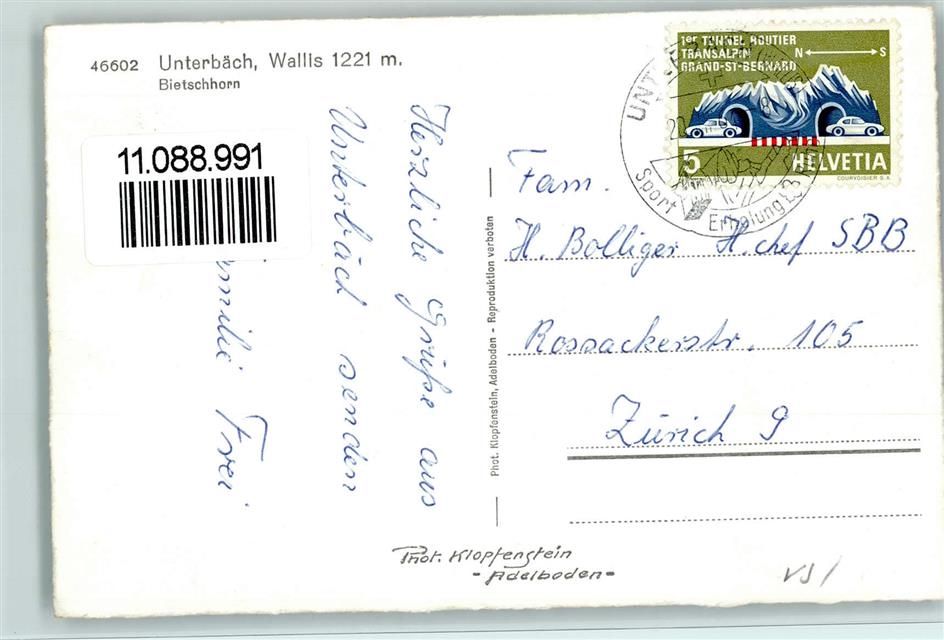 46602 Unterbäch, Wallis 1221 m.
Bietschhorn
11.088.991
Herzliche Grüße aus
Unterbäch senden
Familie Frei
Phot. Klopfenstein, Adelboden - Reproduktion verboten
1er TUNNEL ROUTIER
TRANSALPIN N S
GRAND-ST-BERNARD
5 HELVETIA
COURVOISIER S.A.
Sport
Erholung
Fam.
H. Bolliger H.chef SBB
Rossackerstr. 105
Zürich 9
Phot. Klopfenstein
- Adelboden -
VS/